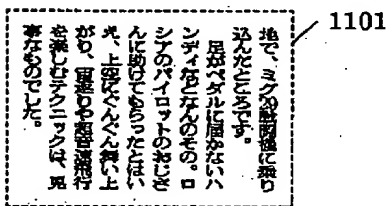 1101
地で、ミグ29戦闘機に乗り
込んだところです。
　足がペダルに届かないハ
ンディなどなんのその。ロ
シアのパイロットのおじさ
んに助けてもらったとはい
え、上空にぐんぐん舞い上
がり、宙返りや超音速飛行
を楽しむテクニックは、見
事なものでした。